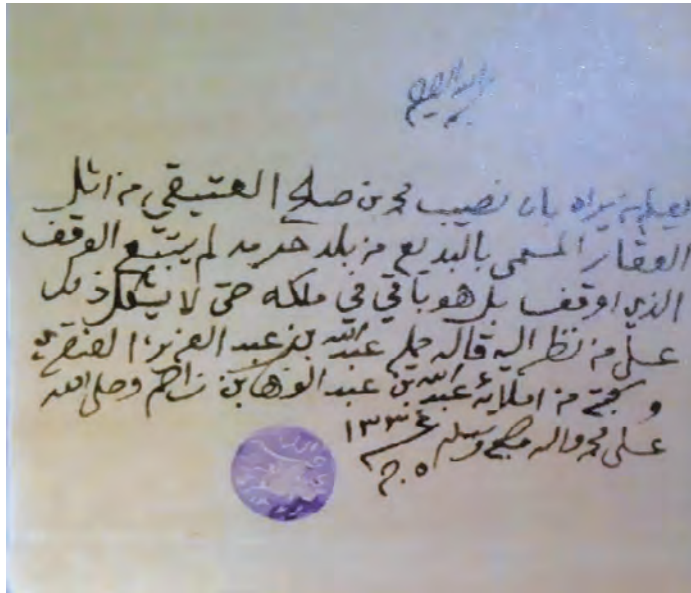 يعلم من يراه بان نصيب محمد بن صالح العتيقي من اثل
العقار المسمى بالبديع من بلد حرمه لم يتبع الوقف
الذي اوقف بل هو باقي في ملكه حتى لا يشكل ذلك
على من نظر اليه قاله ممليه عبدالله بن عبد العزيز العنقري
وكتبه من املائه عبدالله بن عبد الوهاب بن زاحم وصلى الله
على محمد واله وصحبه وسلم
١٣٣٤